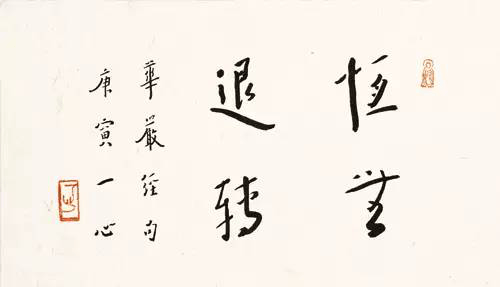 恆無
退轉
華嚴經句
庚寅一心